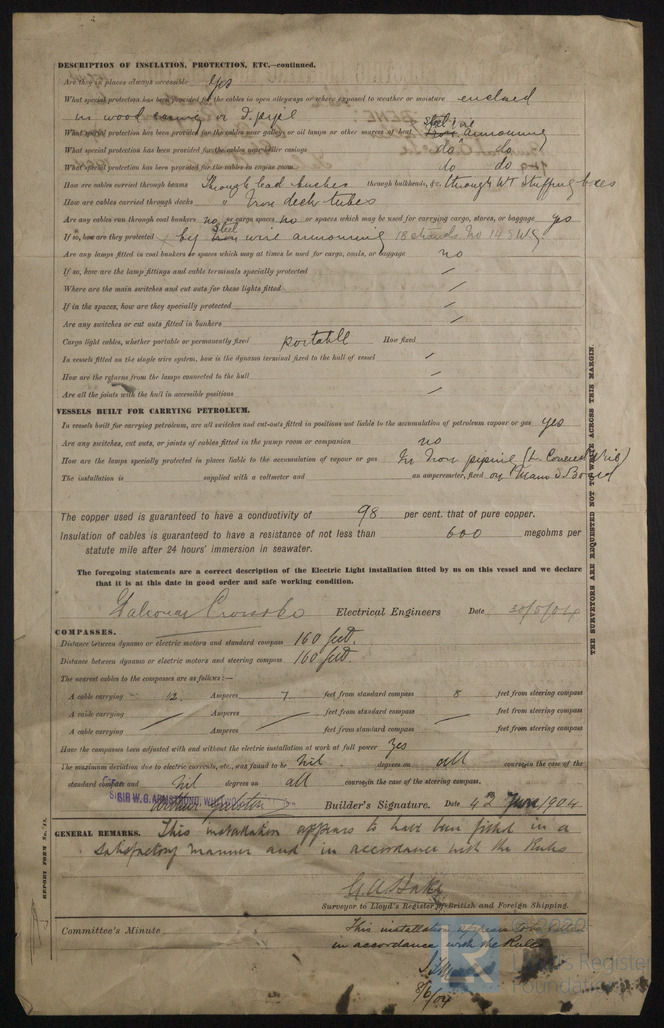 DESCRIPTION OF INSULATION, PROTECTION, ETC.—continued.
Are they in places always accessible Yes
What special protection has been provided for the cables in open alleyways or where exposed to weather or moisture enclosed
in wood casing or I. pipe
What special protection has been provided for the cables near galleys or oil lamps or other sources of heat Steel wire Iron armouring
What special protection has been provided for the cables near boiler casings do do
What special protection has been provided for the cables in engine room do do
How are cables carried through beams Through lead bushes through bulkheads, &c. through WT Stuffing boxes
How are cables carried through decks " Iron deck tubes
Are any cables run through coal bunkers no or cargo spaces no or spaces which may be used for carrying cargo, stores, or baggage yes
If so, how are they protected by Steel Iron wire armouring 18 strands No 14 SWG.
Are any lamps fitted in coal bunkers or spaces which may at times be used for cargo, coals, or baggage no
If so, how are the lamp fittings and cable terminals specially protected /
Where are the main switches and cut outs for these lights fitted /
If in the spaces, how are they specially protected /
Are any switches or cut outs fitted in bunkers /
Cargo light cables, whether portable or permanently fixed portable How fixed
In vessels fitted on the single wire system, how is the dynamo terminal fixed to the hull of vessel /
How are the returns from the lamps connected to the hull /
Are all the joints with the hull in accessible positions /
VESSELS BUILT FOR CARRYING PETROLEUM.
In vessels built for carrying petroleum, are all switches and cut-outs fitted in positions not liable to the accumulation of petroleum vapour or gas yes
Are any switches, cut outs, or joints of cables fitted in the pump room or companion no
How are the lamps specially protected in places liable to the accumulation of vapour or gas In Iron piping (L Covered Wire)
The installation is supplied with a voltmeter and an amperemeter, fixed on Main S. Board
The copper used is guaranteed to have a conductivity of 98 per cent. that of pure copper.
Insulation of cables is guaranteed to have a resistance of not less than 600 megohms per
statute mile after 24 hours' immersion in seawater.
The foregoing statements are a correct description of the Electric Light installation fitted by us on this vessel and we declare
that it is at this date in good order and safe working condition.
Electrical Engineers Date 30/5/04
COMPASSES.
Distance between dynamo or electric motors and standard compass 160 feet.
Distance between dynamo or electric motors and steering compass 160 feet.
The nearest cables to the compasses are as follows:—
A cable carrying 12 Amperes 7 feet from standard compass 8 feet from steering compass
A cable carrying / Amperes / feet from standard compass / feet from steering compass
A cable carrying / Amperes / feet from standard compass / feet from steering compass
Have the compasses been adjusted with and without the electric installation at work at full power Yes
The maximum deviation due to electric currents, etc., was found to be Nil degrees on all courses in the case of the
standard compass and nil degrees on all courses in the case of the steering compass.
SIR W. G. ARMSTRONG, Builder's Signature. Date 4th June 1904
GENERAL REMARKS. This installation appears to have been fitted in a
satisfactory manner and in accordance with the Rules
Surveyor to Lloyd's Register of British and Foreign Shipping.
Committee's Minute This installation appears to be fitted
in accordance with the Rules
8/6/04
THE SURVEYORS ARE REQUESTED NOT TO WRITE ACROSS THIS MARGIN.
REPORT FORM No.
Lloyd's Register
Foundation